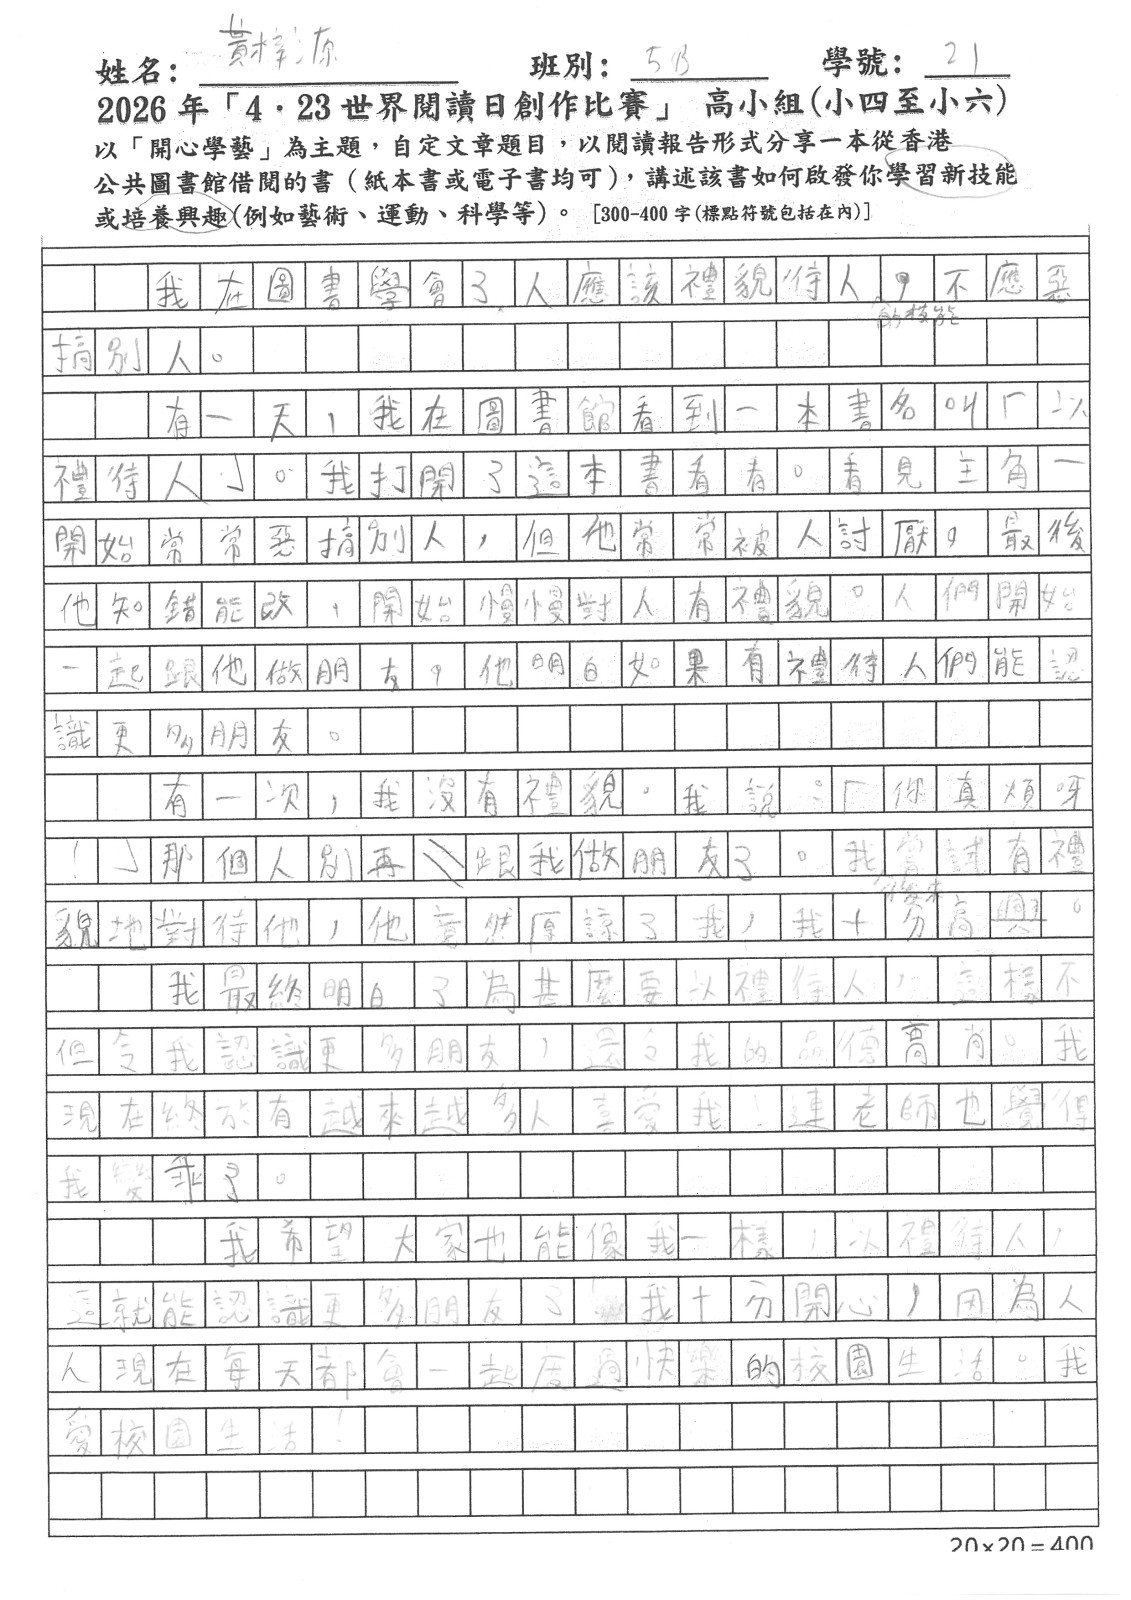 姓名：黃梓源 班別：5B 學號：21
2026 年「4．23 世界閱讀日創作比賽」 高小組(小四至小六)
以「開心學藝」為主題，自定文章題目，以閱讀報告形式分享一本從香港
公共圖書館借閱的書（紙本書或電子書均可），講述該書如何啟發你學習新技能
或培養興趣(例如藝術、運動、科學等)。 [300-400 字(標點符號包括在內)]
我在圖書學會了人應該禮貌待人，不應惡
的技能
搞別人。
有一天，我在圖書館看到一本書名叫「以
禮待人」。我打開了這本書看看。看見主角一
開始常常惡搞別人，但他常常被人討厭，最後
他知錯能改，開始慢慢對人有禮貌。人們開始
一起跟他做朋友，他明白如果有禮待人們能認
識更多朋友。
有一次，我沒有禮貌。我說：「你真煩呀
！」那個人別再跟我做朋友了。我嘗試有禮
後來
貌地對待他，他竟然原諒了我，我十分高興。
我最終明白了為甚麼要以禮待人，這樣不
但令我認識更多朋友，還令我的品德高肖。我
現在終於有越來越多人喜愛我！連老師也覺得
我變乖了。
我希望大家也能像我一樣，以禮待人，
這就能認識更多朋友了 我十分開心，因為人
人現在每天都會一起度過快樂的校園生活。我
愛校園生活！
20×20=400